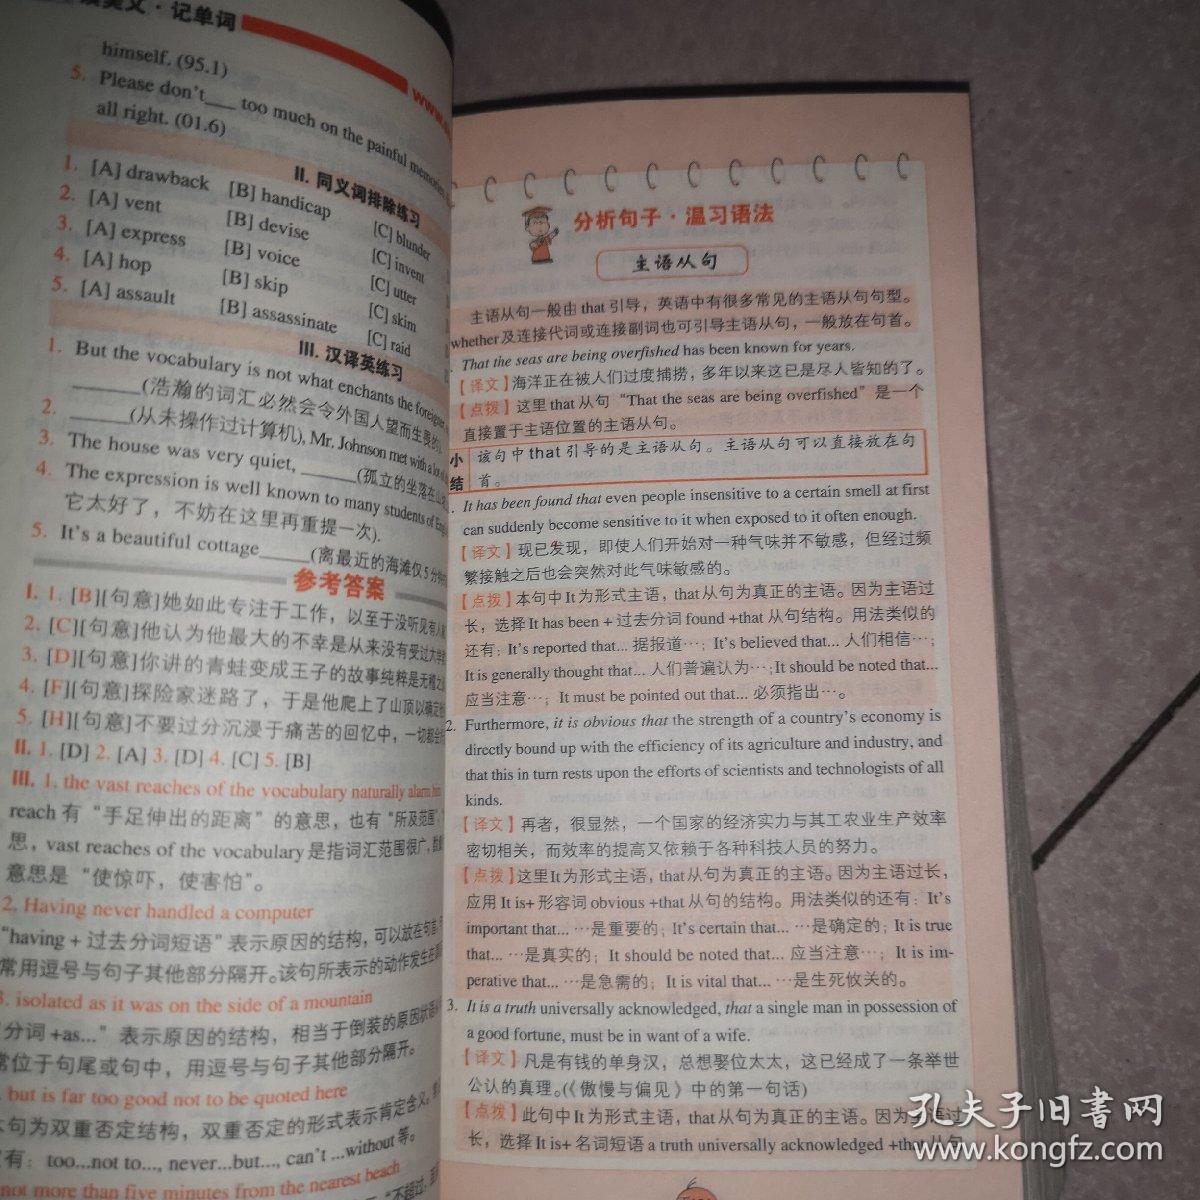 读美文·记单词
himself. (95.1)
5. Please don't___ too much on the painful memories
all right. (01.6)
II. 同义词排除练习
1. [A] drawback [B] handicap [C] blunder
2. [A] vent [B] devise [C] invent
3. [A] express [B] voice [C] utter
4. [A] hop [B] skip [C] skim
5. [A] assault [B] assassinate [C] raid
III. 汉译英练习
1. But the vocabulary is not what enchants the foreigner
______(浩瀚的词汇必然会令外国人望而生畏的).
2. ______(从未操作过计算机), Mr. Johnson met with a lot of
3. The house was very quiet, ______(孤立的坐落在山
4. The expression is well known to many students of
它太好了，不妨在这里再重提一次).
5. It's a beautiful cottage______(离最近的海滩仅5分钟的
参考答案
I. 1. [B][句意]她如此专注于工作，以至于没听见有人
2. [C][句意]他认为他最大的不幸是从来没有受过大学
3. [D][句意]你讲的青蛙变成王子的故事纯粹是无稽之
4. [F][句意]探险家迷路了，于是他爬上了山顶以确定
5. [H][句意]不要过分沉浸于痛苦的回忆中，一切都会
II. 1. [D] 2. [A] 3. [D] 4. [C] 5. [B]
III. 1. the vast reaches of the vocabulary naturally alarm him
reach 有“手足伸出的距离”的意思，也有“所及范围”
思，vast reaches of the vocabulary 是指词汇范围很广，
意思是“使惊吓，使害怕”。
2. Having never handled a computer
“having + 过去分词短语”表示原因的结构，可以放在句首
常用逗号与句子其他部分隔开。该句所表示的动作发生在
3. isolated as it was on the side of a mountain
分词 +as...”表示原因的结构，相当于倒装的原因状语
常位于句尾或句中，用逗号与句子其他部分隔开。
but is far too good not to be quoted here
句为双重否定结构，双重否定的形式表示肯定含义。
有：too...not to..., never...but..., can't ...without 等。
not more than five minutes from the nearest beach
分析句子·温习语法
主语从句
主语从句一般由 that 引导，英语中有很多常见的主语从句句型。
whether及连接代词或连接副词也可引导主语从句，一般放在句首。
. That the seas are being overfished has been known for years.
【译文】海洋正在被人们过度捕捞，多年以来这已是尽人皆知的了。
【点拨】这里 that 从句“That the seas are being overfished”是一个
直接置于主语位置的主语从句。
小结 该句中that引导的是主语从句。主语从句可以直接放在句
首。
. It has been found that even people insensitive to a certain smell at first
can suddenly become sensitive to it when exposed to it often enough.
【译文】现已发现，即使人们开始对一种气味并不敏感，但经过频
繁接触之后也会突然对此气味敏感的。
【点拨】本句中It为形式主语，that从句为真正的主语。因为主语过
长，选择 It has been + 过去分词 found +that 从句结构。用法类似的
还有：It's reported that... 据报道…；It's believed that... 人们相信…；
It is generally thought that... 人们普遍认为…；It should be noted that...
应当注意…；It must be pointed out that... 必须指出…。
2. Furthermore, it is obvious that the strength of a country's economy is
directly bound up with the efficiency of its agriculture and industry, and
that this in turn rests upon the efforts of scientists and technologists of all
kinds.
【译文】再者，很显然，一个国家的经济实力与其工农业生产效率
密切相关，而效率的提高又依赖于各种科技人员的努力。
【点拨】这里It为形式主语，that从句为真正的主语。因为主语过长，
应用 It is+ 形容词 obvious +that 从句的结构。用法类似的还有：It's
important that... …是重要的；It's certain that... …是确定的；It is true
that... …是真实的；It should be noted that... 应当注意…；It is im-
perative that... …是急需的；It is vital that... …是生死攸关的。
3. It is a truth universally acknowledged, that a single man in possession of
a good fortune, must be in want of a wife.
【译文】凡是有钱的单身汉，总想娶位太太，这已经成了一条举世
公认的真理。(《傲慢与偏见》中的第一句话)
【点拨】此句中It为形式主语，that从句为真正的主语。因为主语过
长，选择 It is+ 名词短语 a truth universally acknowledged +that从句
孔夫子旧书网
www.kongfz.com